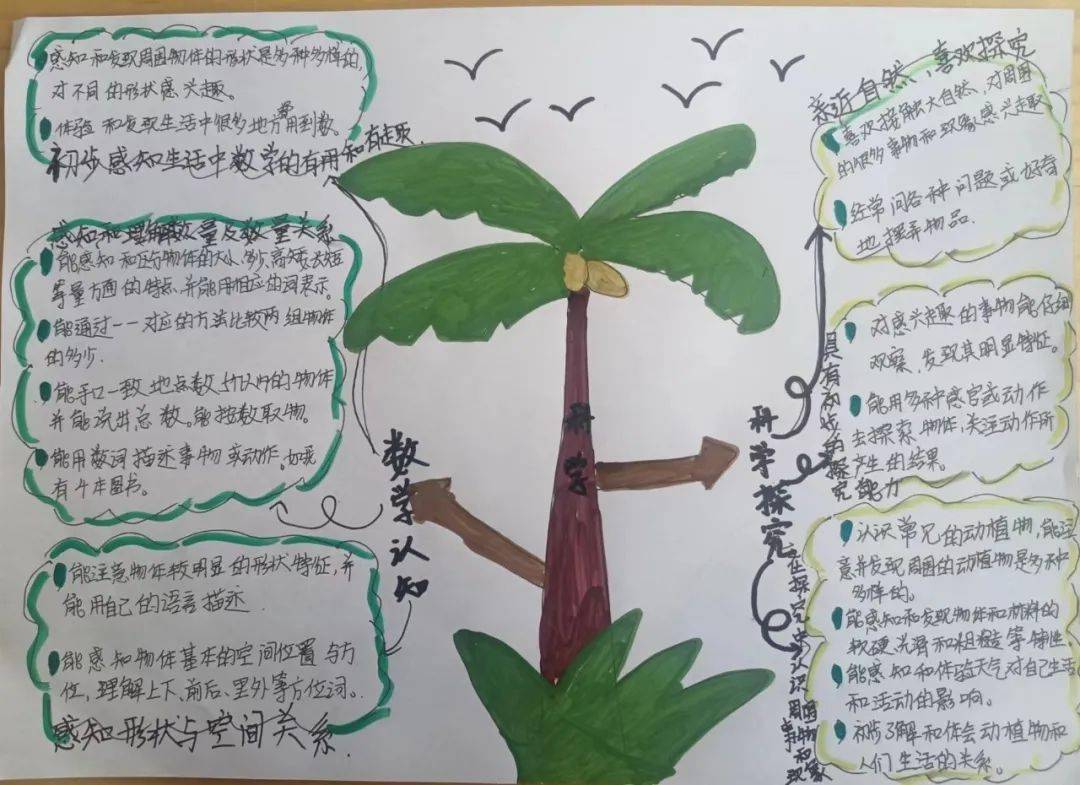 感知和发现周围物体的形状是多种多样的,
对不同的形状感兴趣。
体验和发现生活中很多地方会用到数。
初步感知生活中数学的有用和有趣.
感知和理解数量及数量关系
能感知和区分物体的大小、多少、高矮、长短
等量方面的特点,并能用相应的词表示。
能通过一一对应的方法比较两组物体
的多少.
能手口一致地点数5个以内的物体
并能说出总数。能按数取物。
能用数词描述事物或动作。如我
有4本图书。
能注意物体较明显的形状特征,并
能用自己的语言描述.
能感知物体基本的空间位置与方
位,理解上下、前后、里外等方位词。.
感知形状与空间关系.
数学认知
科学
科学探究
亲近自然、喜欢探究
喜欢接触大自然、对周围
的很多事物和现象感兴趣
经常问各种问题或好奇
地摆弄物品.
具有初步的探究能力
对感兴趣的事物能仔细
观察,发现其明显特征。
能用多种感官或动作
去探索物体,关注动作所
产生的结果。
在探究中认识周围事物和现象
认识常见的动植物,能注
意并发现周围的动植物是多种
多样的。
能感知和发现物体和材料的
软硬、光滑和粗糙等特性.
能感知和体验天气对自己生活
和活动的影响。
初步了解和体会动植物和
人们生活的关系。